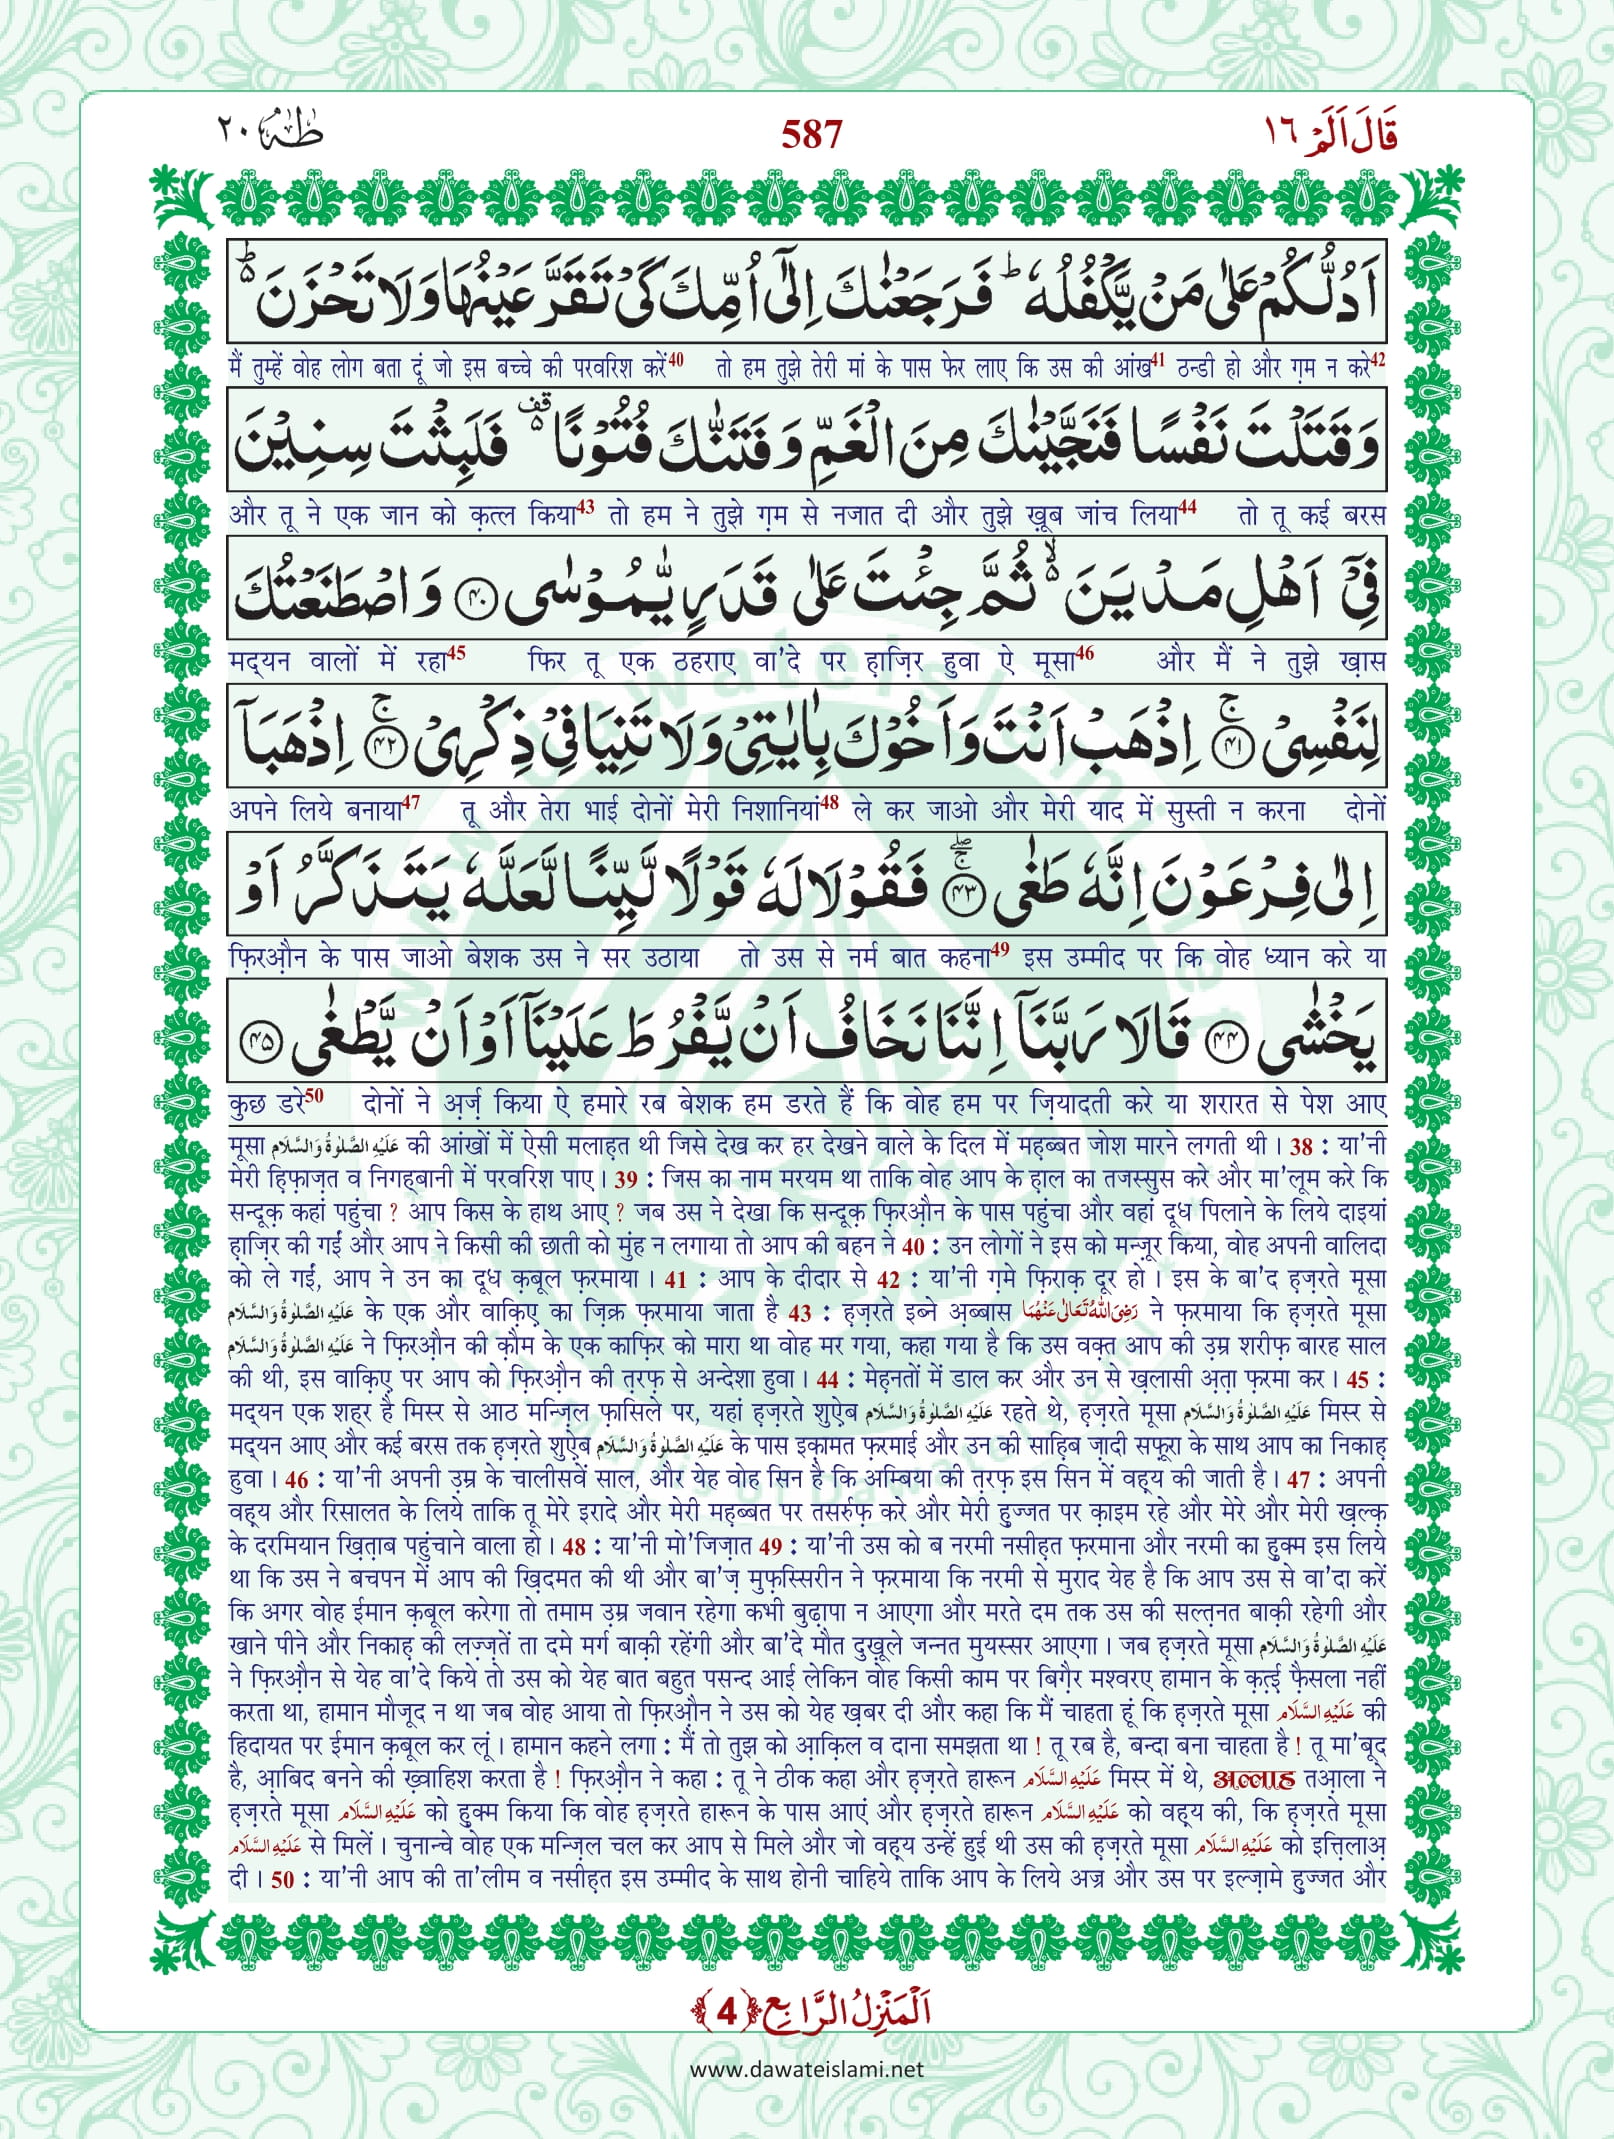 قَالَ اَلَمْ ١٦
587
طٰهٰ ٢٠
اَدُلُّكُمْ عَلٰى مَنْ يَّكْفُلُهٗ ؕ فَرَجَعْنٰكَ اِلٰۤى اُمِّكَ كَیْ تَقَرَّ عَیْنُهَا وَ لَا تَحْزَنَ ۬ؕ
मैं तुम्हें वोह लोग बता दूं जो इस बच्चे की परवरिश करें40 तो हम तुझे तेरी मां के पास फेर लाए कि उस की आंख41 ठन्डी हो और ग़म न करे42
وَ قَتَلْتَ نَفْسًا فَنَجَّیْنٰكَ مِنَ الْغَمِّ وَ فَتَنّٰكَ فُتُوْنًا ۬۫ قف فَلَبِثْتَ سِنِیْنَ
और तू ने एक जान को क़त्ल किया43 तो हम ने तुझे ग़म से नजात दी और तुझे ख़ूब जांच लिया44 तो तू कई बरस
فِیْۤ اَهْلِ مَدْیَنَ ۬ۙ ثُمَّ جِئْتَ عَلٰى قَدَرٍ یّٰمُوْسٰى ﴿۴۰﴾ وَ اصْطَنَعْتُكَ
मद्यन वालों में रहा45 फिर तू एक ठहराए वा'दे पर ह़ाज़िर हुवा ऐ मूसा46 और मैं ने तुझे ख़ास
لِنَفْسِیْ ﴿ۚ۴۱﴾ اِذْهَبْ اَنْتَ وَ اَخُوْكَ بِاٰیٰتِیْ وَ لَا تَنِیَا فِیْ ذِكْرِیْ ﴿ۚ۴۲﴾ اِذْهَبَاۤ
अपने लिये बनाया47 तू और तेरा भाई दोनों मेरी निशानियां48 ले कर जाओ और मेरी याद में सुस्ती न करना दोनों
اِلٰى فِرْعَوْنَ اِنَّهٗ طَغٰى ﴿ۚۖ۴۳﴾ فَقُوْلَا لَهٗ قَوْلًا لَّیِّنًا لَّعَلَّهٗ یَتَذَكَّرُ اَوْ
फ़िरऔ़न के पास जाओ बेशक उस ने सर उठाया तो उस से नर्म बात कहना49 इस उम्मीद पर कि वोह ध्यान करे या
یَخْشٰى ﴿۴۴﴾ قَالَا رَبَّنَاۤ اِنَّنَا نَخَافُ اَنْ یَّفْرُطَ عَلَیْنَاۤ اَوْ اَنْ یَّطْغٰى ﴿۴۵﴾
कुछ डरे50 दोनों ने अ़र्ज़ किया ऐ हमारे रब बेशक हम डरते हैं कि वोह हम पर ज़ियादती करे या शरारत से पेश आए
मूसा عَلَیْهِ الصَّلٰوةُ وَالسَّلَام की आंखों में ऐसी मलाहत थी जिसे देख कर हर देखने वाले के दिल में महब्बत जोश मारने लगती थी । 38 : या'नी
मेरी ह़िफ़ाज़त व निगह्बानी में परवरिश पाए । 39 : जिस का नाम मरयम था ताकि वोह आप के ह़ाल का तजस्सुस करे और मा'लूम करे कि
सन्दूक़ कहां पहुंचा ? आप किस के हाथ आए ? जब उस ने देखा कि सन्दूक़ फ़िरऔ़न के पास पहुंचा और वहां दूध पिलाने के लिये दाइयां
ह़ाज़िर की गईं और आप ने किसी की छाती को मुंह न लगाया तो आप की बहन ने 40 : उन लोगों ने इस को मन्ज़ूर किया, वोह अपनी वालिदा
को ले गईं, आप ने उन का दूध क़बूल फ़रमाया । 41 : आप के दीदार से 42 : या'नी ग़मे फ़िराक़ दूर हो । इस के बा'द ह़ज़रते मूसा
عَلَیْهِ الصَّلٰوةُ وَالسَّلَام के एक और वाक़िए़ का ज़िक्र फ़रमाया जाता है 43 : ह़ज़रते इब्ने अ़ब्बास رَضِیَ اللهُ تَعَالٰی عَنْهُمَا ने फ़रमाया कि ह़ज़रते मूसा
عَلَیْهِ الصَّلٰوةُ وَالسَّلَام ने फ़िरऔ़न की क़ौम के एक काफ़िर को मारा था वोह मर गया, कहा गया है कि उस वक़्त आप की उ़म्र शरीफ़ बारह साल
की थी, इस वाक़िए़ पर आप को फ़िरऔ़न की त़रफ़ से अन्देशा हुवा । 44 : मेह़नतों में डाल कर और उन से ख़लासी अ़त़ा फ़रमा कर । 45 :
मद्यन एक शहर है मिस्र से आठ मन्ज़िल फ़ासिले पर, यहां ह़ज़रते शुऐ़ब عَلَیْهِ الصَّلٰوةُ وَالسَّلَام रहते थे, ह़ज़रते मूसा عَلَیْهِ الصَّلٰوةُ وَالسَّلَام मिस्र से
मद्यन आए और कई बरस तक ह़ज़रते शुऐ़ब عَلَیْهِ الصَّلٰوةُ وَالسَّلَام के पास इक़ामत फ़रमाई और उन की साह़िब ज़ादी सफ़ूरा के साथ आप का निकाह़
हुवा । 46 : या'नी अपनी उ़म्र के चालीसवें साल, और येह वोह सिन है कि अम्बिया की त़रफ़ इस सिन में वह़्य की जाती है । 47 : अपनी
वह़्य और रिसालत के लिये ताकि तू मेरे इरादे और मेरी महब्बत पर तसर्रुफ़ करे और मेरी हुज्जत पर क़ाइम रहे और मेरे और मेरी ख़ल्क़
के दरमियान ख़ित़ाब पहुंचाने वाला हो । 48 : या'नी मो'जिज़ात 49 : या'नी उस को ब नरमी नसीह़त फ़रमाना और नरमी का हुक्म इस लिये
था कि उस ने बचपन में आप की ख़िदमत की थी और बा'ज़ मुफ़स्सिरीन ने फ़रमाया कि नरमी से मुराद येह है कि आप उस से वा'दा करें
कि अगर वोह ईमान क़बूल करेगा तो तमाम उ़म्र जवान रहेगा कभी बुढ़ापा न आएगा और मरते दम तक उस की सल्त़नत बाक़ी रहेगी और
खाने पीने और निकाह़ की लज़्ज़तें ता दमे मर्ग बाक़ी रहेंगी और बा'दे मौत दुख़ूले जन्नत मुयस्सर आएगा । जब ह़ज़रते मूसा عَلَیْهِ الصَّلٰوةُ وَالسَّلَام
ने फ़िरऔ़न से येह वा'दे किये तो उस को येह बात बहुत पसन्द आई लेकिन वोह किसी काम पर बिग़ैर मश्वरए हामान के क़त़ई फ़ैसला नहीं
करता था, हामान मौजूद न था जब वोह आया तो फ़िरऔ़न ने उस को येह ख़बर दी और कहा कि मैं चाहता हूं कि ह़ज़रते मूसा عَلَیْهِ السَّلَام की
हिदायत पर ईमान क़बूल कर लूं । हामान कहने लगा : मैं तो तुझ को आ़क़िल व दाना समझता था ! तू रब है, बन्दा बना चाहता है ! तू मा'बूद
है, आ़बिद बनने की ख़्वाहिश करता है ! फ़िरऔ़न ने कहा : तू ने ठीक कहा और ह़ज़रते हारून عَلَیْهِ السَّلَام मिस्र में थे, अल्लाह तआ़ला ने
ह़ज़रते मूसा عَلَیْهِ السَّلَام को हुक्म किया कि वोह ह़ज़रते हारून के पास आएं और ह़ज़रते हारून عَلَیْهِ السَّلَام को वह़्य की, कि ह़ज़रते मूसा
عَلَیْهِ السَّلَام से मिलें । चुनान्चे वोह एक मन्ज़िल चल कर आप से मिले और जो वह़्य उन्हें हुई थी उस की ह़ज़रते मूसा عَلَیْهِ السَّلَام को इत्तिलाअ़
दी । 50 : या'नी आप की ता'लीम व नसीह़त इस उम्मीद के साथ होनी चाहिये ताकि आप के लिये अज्र और उस पर इल्ज़ामे हुज्जत और
اَلْمَنْزِلُ الرَّابِع ﴿4﴾
www.dawateislami.net